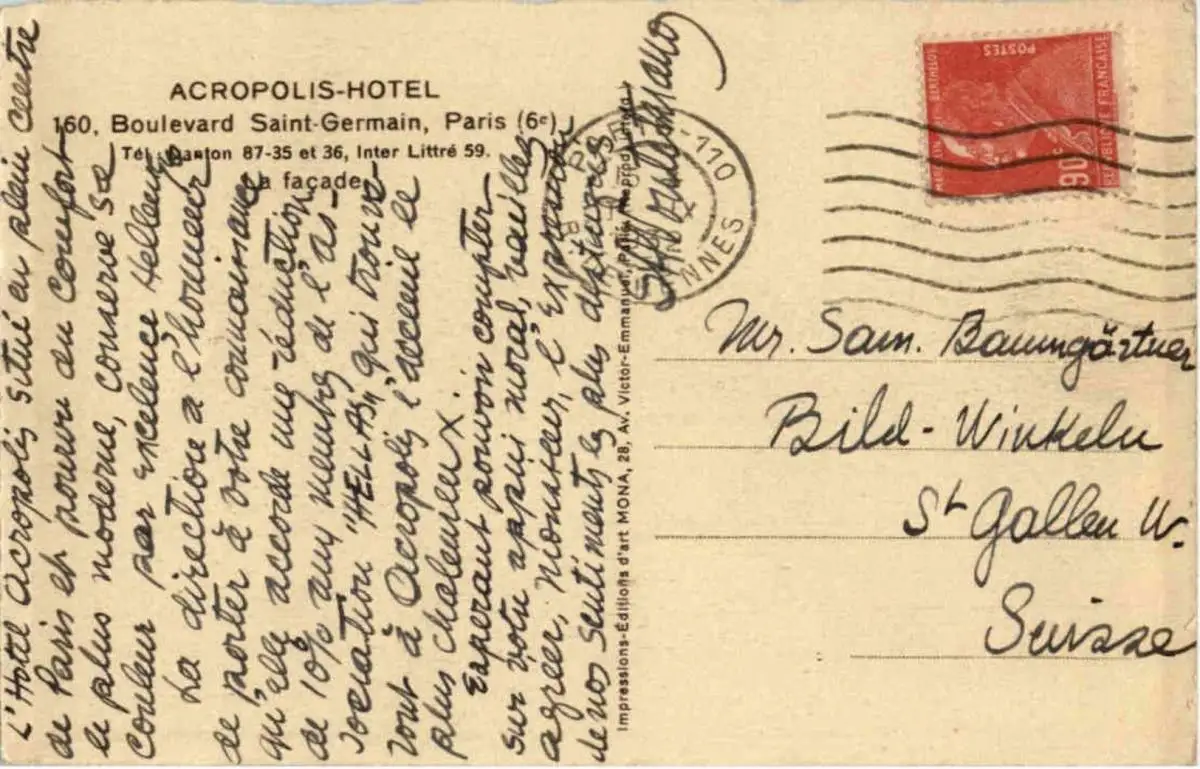 ACROPOLIS-HOTEL
160, Boulevard Saint-Germain, Paris (6e)
Tél. Danton 87-35 et 36, Inter Littré 59.
La façade
L'Hotel Acropolis situé en plein centre
de Paris et pourvu du confort
le plus moderne, conserve sa
couleur par excelence Hellene
La direction a l'honneur
de porter à votre connaissance
qu'elle accorde une réduction
de 10% aux membres de l'as-
sociation "HELLAS", qui trouve-
ront à Acropolis l'acceuil le
plus chaleureux.
Esperant pouvoir compter
sur votre appui moral, veuillez
agreer, monsieur, l'expression
de nos sentiments les plus distingués
Impressions-Éditions d'art MONA, 28, Av. Victor-Emmanuel, Paris. (Reprod. interd.)
PARIS-110
RENNES
POSTES
BERTHELOT
RÉPUBLIQUE FRANÇAISE
90c
Mr. Sam. Baumgärtner
Bild-Winkeln
St Gallen W.
Suisse